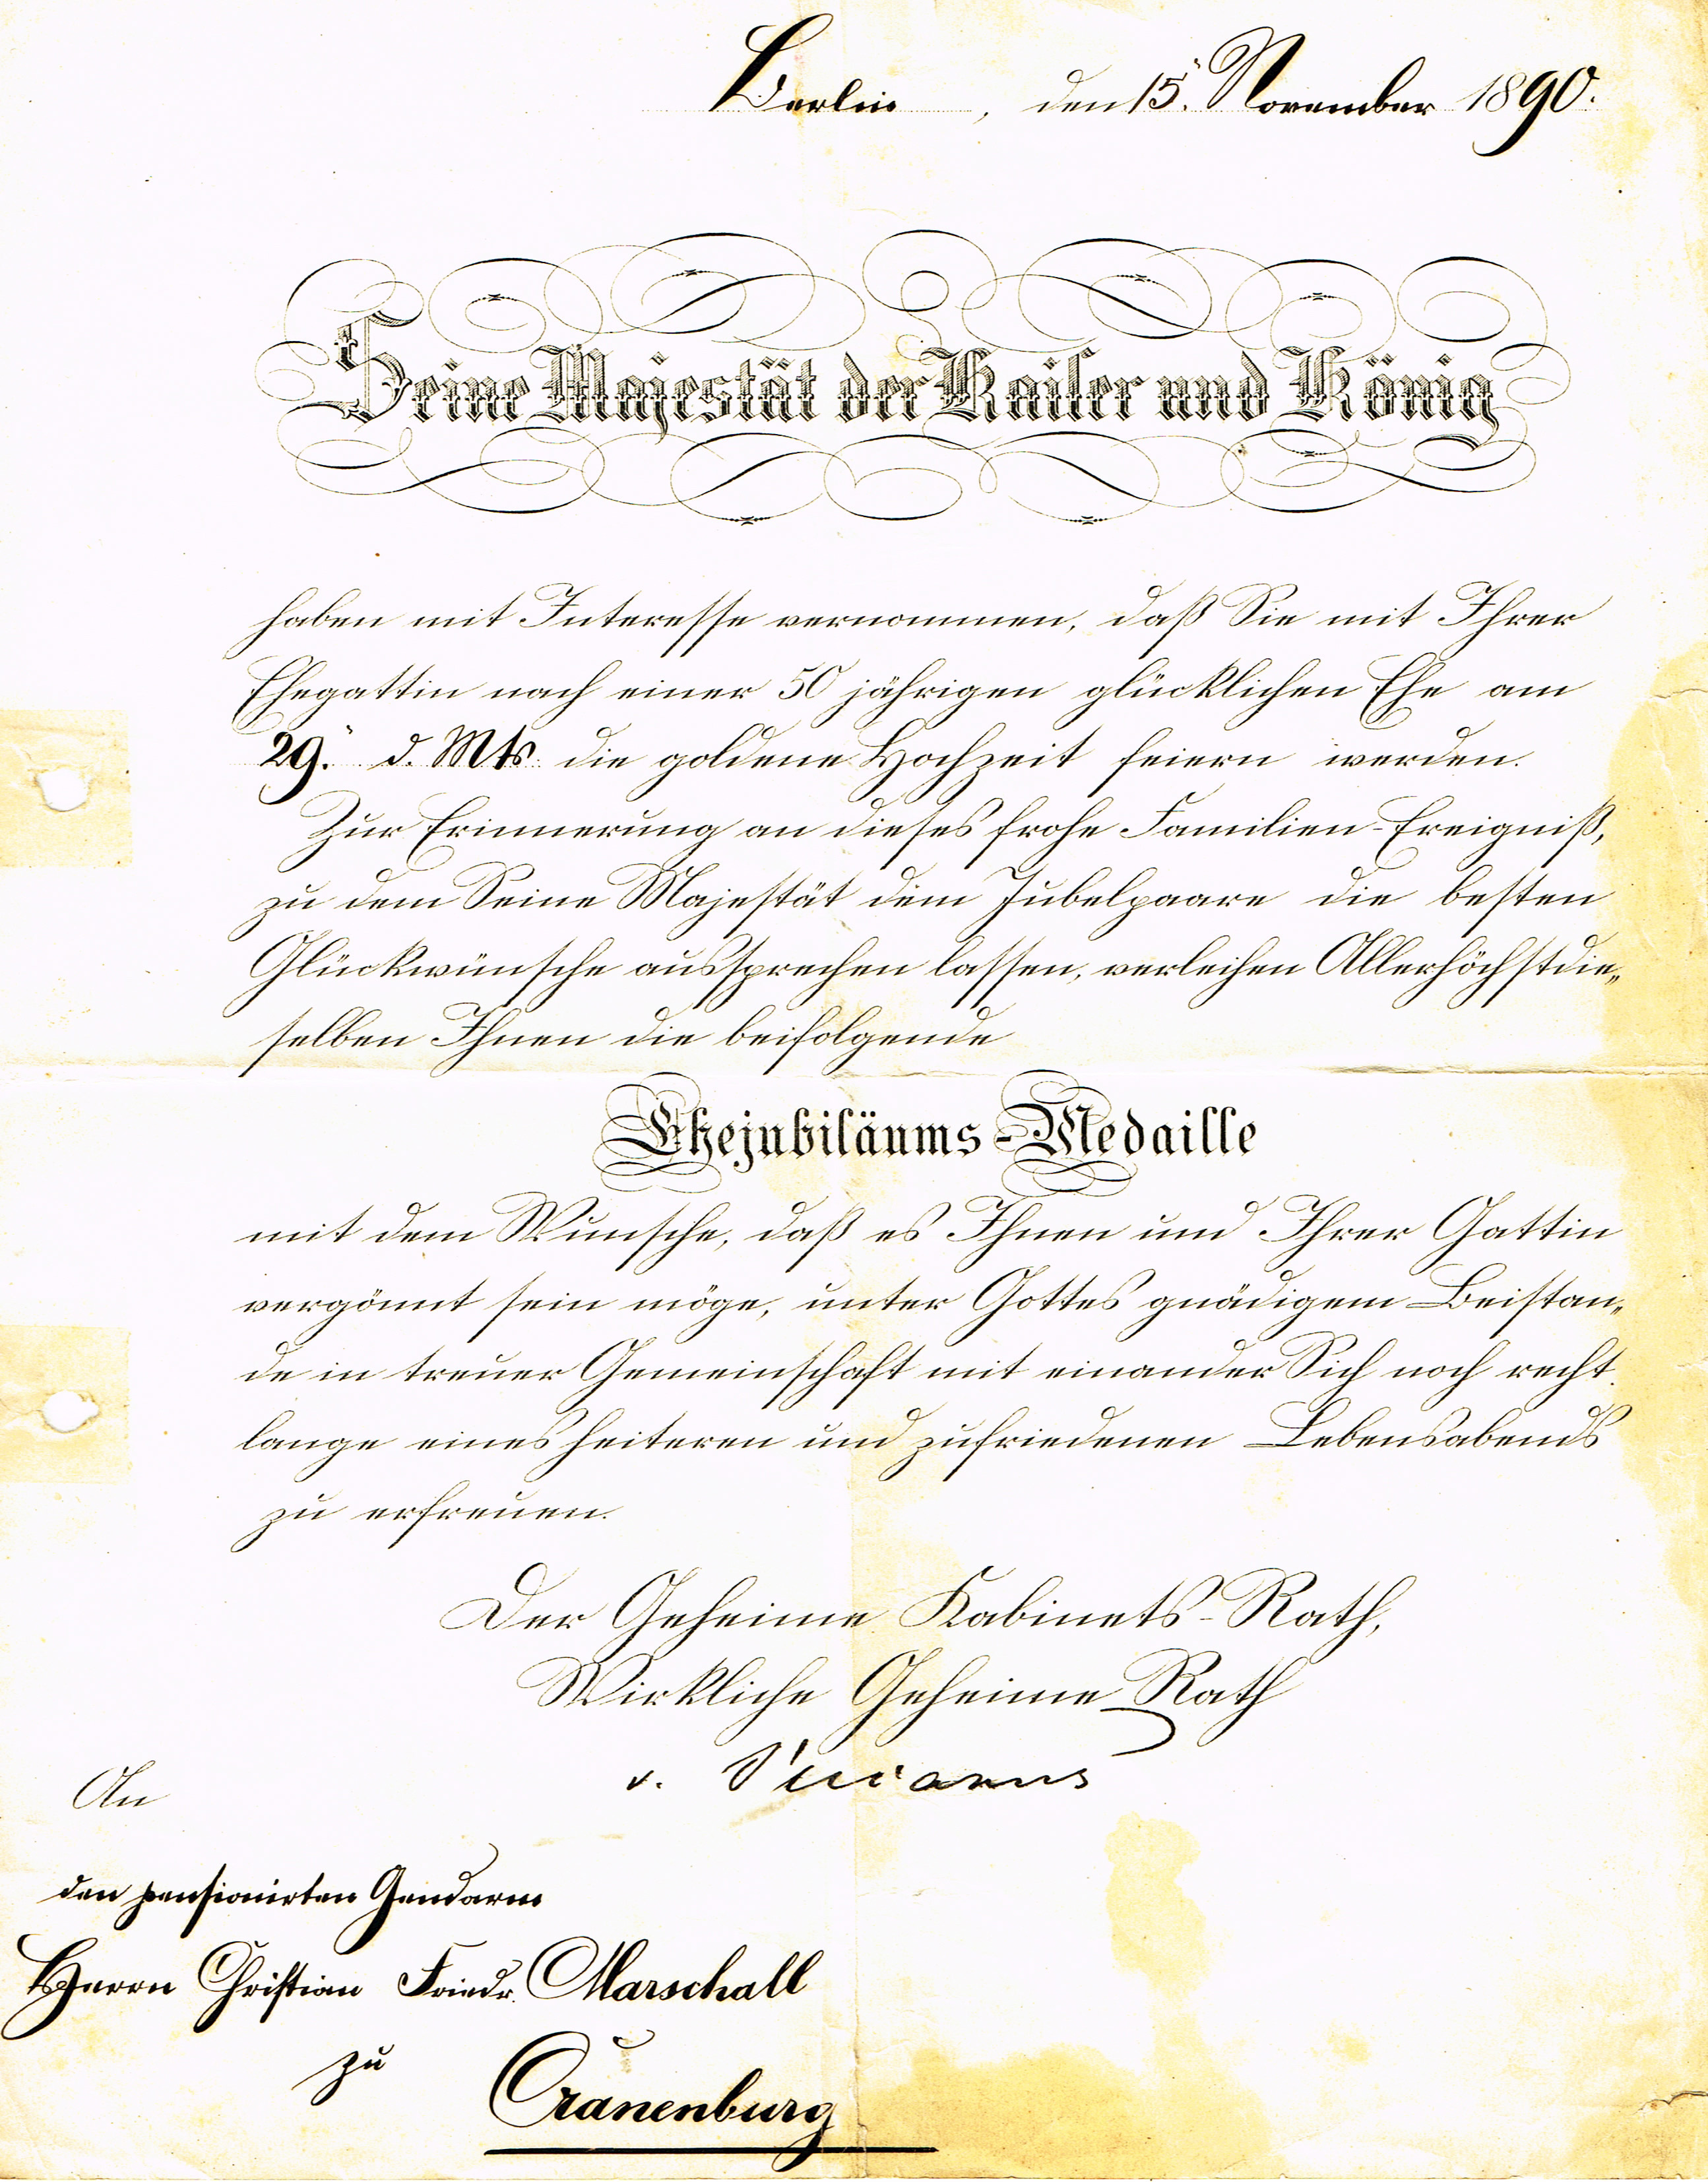 Berlin, den 15. November 1890.
Seine Majestät der Kaiser und König
haben mit Interesse vernommen, daß Sie mit Ihrer
Ehegattin nach einer 50 jährigen glücklichen Ehe am
29. d. Mts. die goldene Hochzeit feiern werden.
Zur Erinnerung an dieses frohe Familien-Ereigniß,
zu dem Seine Majestät dem Jubelpaare die besten
Glückwünsche aussprechen lassen, verleihen Allerhöchstdie„
selben Ihnen die beifolgende
Ehejubiläums-Medaille
mit dem Wunsche, daß es Ihnen und Ihrer Gattin
vergönnt sein möge, unter Gottes gnädigem Beistan„
de in treuer Gemeinschaft mit einander Sich noch recht
lange eines heiteren und zufriedenen Lebensabends
zu erfreuen.
Der Geheime Kabinets-Rath,
Wirkliche Geheime Rath
v. Lucanus
An
den pensionirten Gendarm
Herrn Christian Friedr. Marschall
zu
Cranenburg